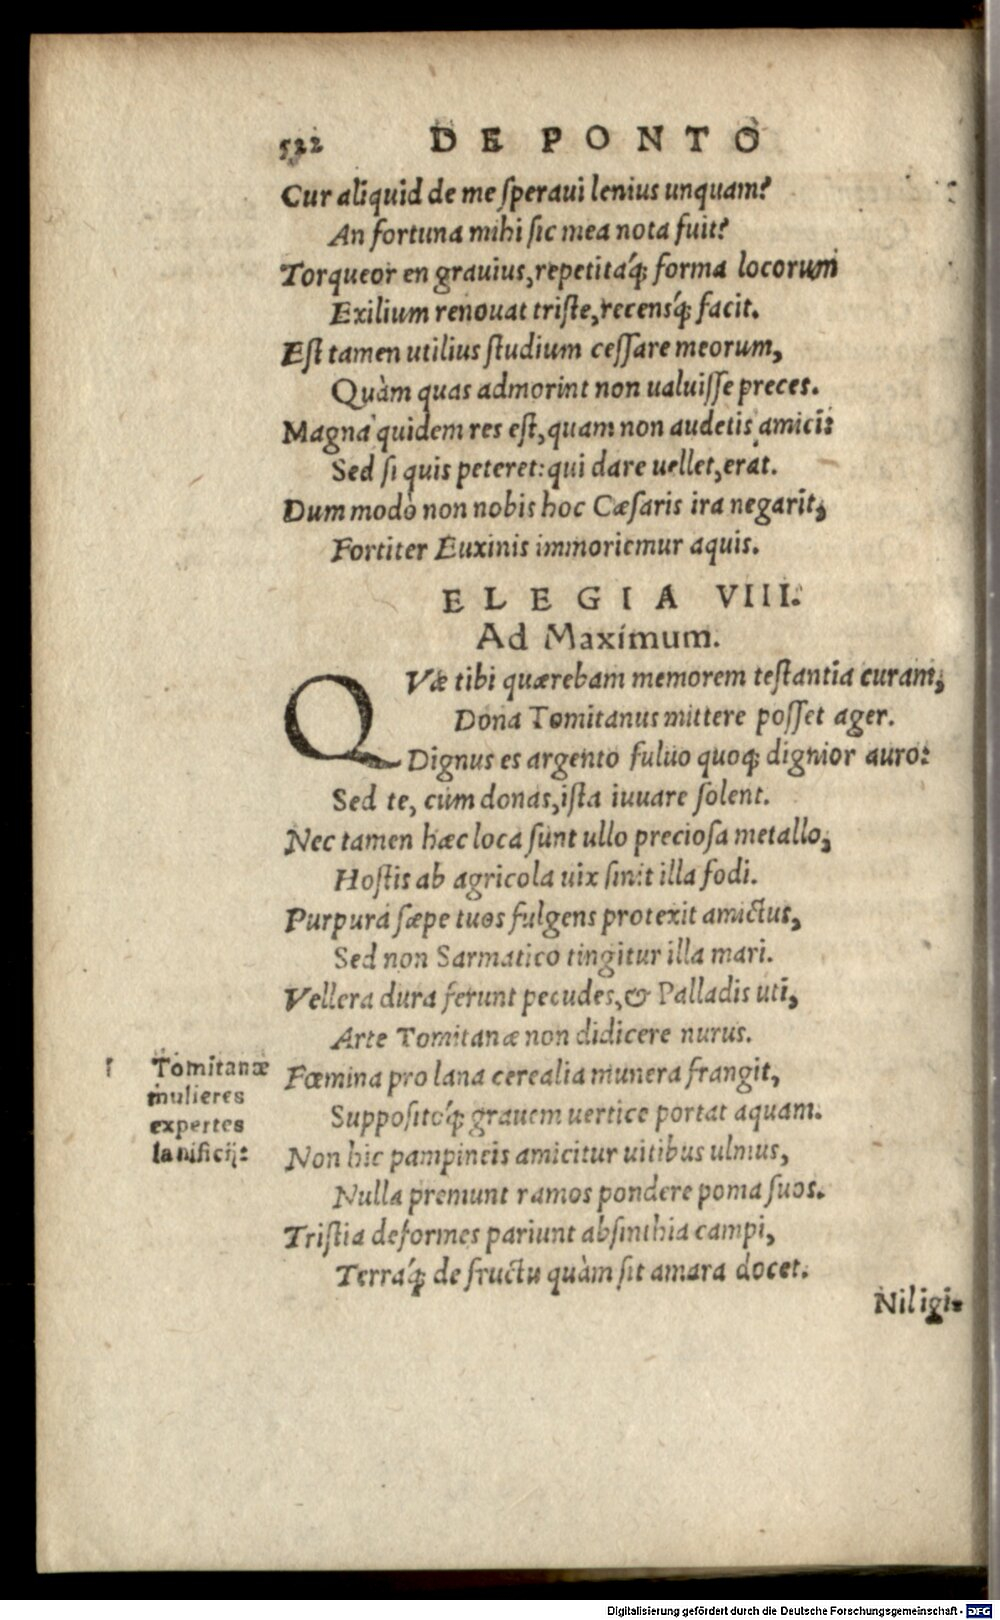 522 DE PONTO
Cur aliquid de me ſperaui lenius unquam?
An fortuna mihi ſic mea nota fuit?
Torqueor en grauius, repetitáq; forma locorum
Exilium renouat triſte, recensq́; facit.
Eſt tamen utilius ſtudium ceſſare meorum,
Quàm quas admorint non ualuiſſe preces.
Magna quidem res eſt, quam non audetis amici:
Sed ſi quis peteret: qui dare uellet, erat.
Dum modò non nobis hoc Cæſaris ira negarit,
Fortiter Euxinis immoriemur aquis.
ELEGIA VIII.
Ad Maximum.
QVæ tibi quærebam memorem teſtantia curam,
Dona Tomitanus mittere poſſet ager.
Dignus es argento fuluo quoq; dignior auro:
Sed te, cùm donas, iſta iuuare ſolent.
Nec tamen hæc loca ſunt ullo precioſa metallo,
Hoſtis ab agricola uix ſinit illa fodi.
Purpura ſæpe tuos fulgens protexit amictus,
Sed non Sarmatico tingitur illa mari.
Vellera dura ferunt pecudes, & Palladis uti,
Arte Tomitanæ non didicere nurus.
Tomitanæ
mulieres
expertes
lanificij:
Fœmina pro lana cerealia munera frangit,
Suppoſitoq́; grauem uertice portat aquam.
Non hic pampineis amicitur uitibus ulmus,
Nulla premunt ramos pondere poma ſuos.
Triſtia deformes pariunt abſinthia campi,
Terráq; de fructu quàm ſit amara docet.
Nil igi-
Digitalisierung gefördert durch die Deutsche Forschungsgemeinschaft - DFG